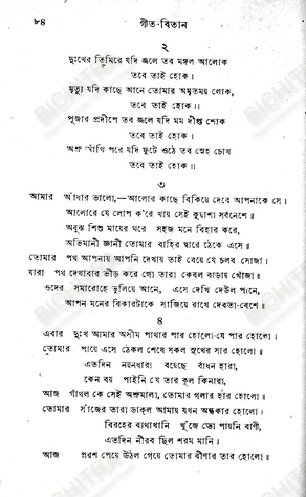 ৮৪
গীত-বিতান
২
দুঃখের তিমিরে যদি জ্বলে তব মঙ্গল আলোক
তবে তাই হোক।
মৃত্যু যদি কাছে আনে তোমার অমৃতময় লোক,
তবে তাই হোক॥
পূজার প্রদীপে তব জ্বলে যদি মম দীপ্ত শোক
তবে তাই হোক।
অশ্রু আঁখি পরে যদি ফুটে ওঠে তব স্নেহ চোখ
তবে তাই হোক॥
৩
আমার আঁধার ভালো,—আলোর কাছে বিকিয়ে দেবে আপনাকে সে।
আলোরে যে লোপ ক'রে খায় সেই কুয়াশা সর্বনেশে॥
অবুঝ শিশু মায়ের ঘরে সহজ মনে বিহার করে,
অভিমানী জ্ঞানী তোমার বাহির দ্বারে ঠেকে এসে॥
তোমার পথ আপনায় আপনি দেখায় তাই বেয়ে যে চলব সোজা।
যারা পথ দেখাবার ভীড় করে গো তারা কেবল বাড়ায় খোঁজা॥
ওদের সমারোহে ভুলিয়ে আনে, এসে দেখি দেউল পানে,
আপন মনের বিকারটাকে সাজিয়ে রাখে দেবতা-বেশে॥
৪
এবার দুঃখ আমার অসীম পাথার পার হোলো-যে পার হোলো।
তোমার পায়ে এসে ঠেকল শেষে সকল সুখের সার হোলো॥
এতদিন নয়নধারা বয়েছে বাঁধন হারা,
কেন বয় পাইনি যে তার কূল কিনারা,
আজ গাঁথল কে সেই অশ্রুমালা, তোমার গলার হার হোলো॥
তোমার সাঁজের তারা ডাকল আমায় যখন অন্ধকার হোলো।
বিরহের ব্যথাখানি খুঁজে তো পায়নি বাণী,
এতদিন নীরব ছিল শরম মানি।
আজ পরশ পেয়ে উঠল গেয়ে তোমার বীণার তার হোলো॥